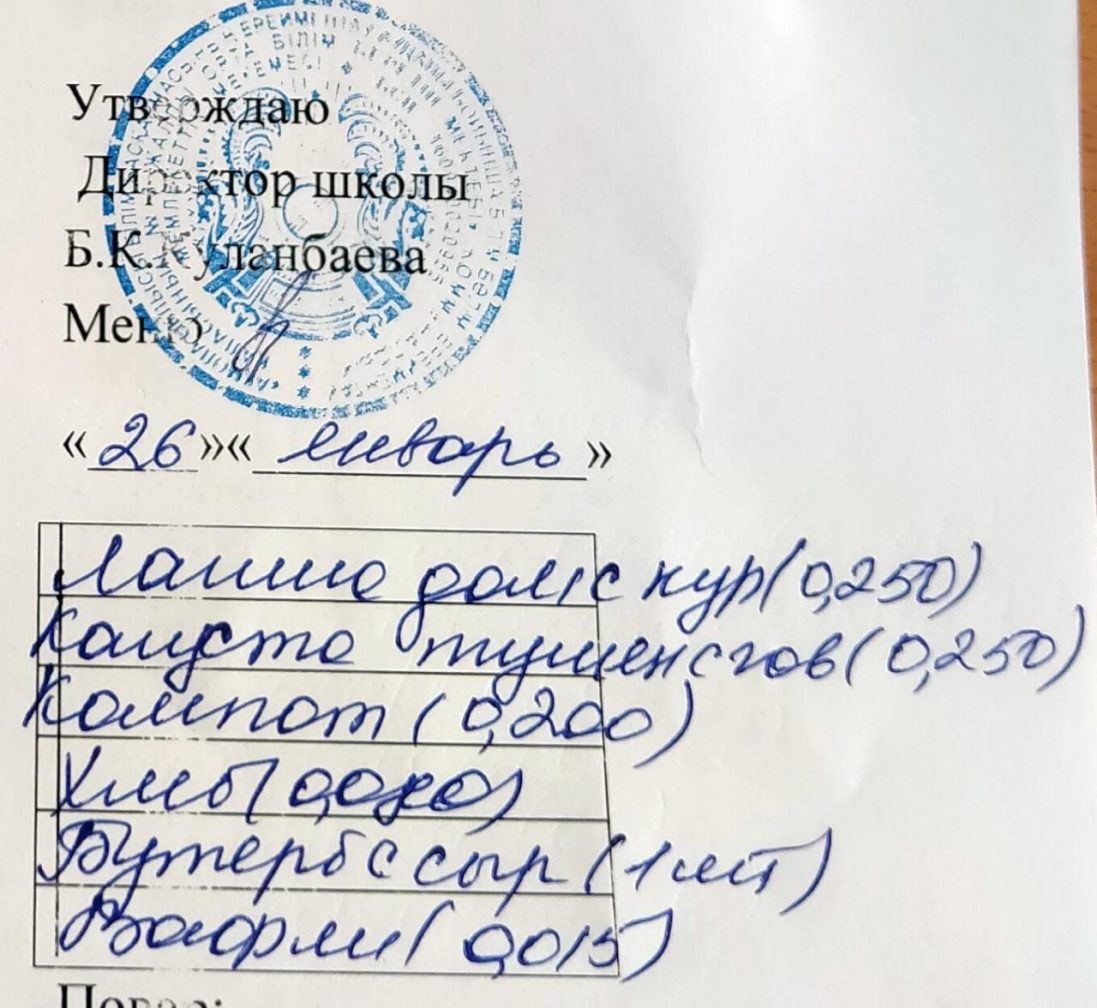 Утверждаю
Директор школы
Б.К. Куланбаева
Меню
«26»«январь»
Лапша дом с кур(0,250)
Капуста тушен с гов(0,250)
Компот (0,200)
Хлеб(0,080)
Бутерб с сыр (1 шт)
Вафли(0,015)
Повар: